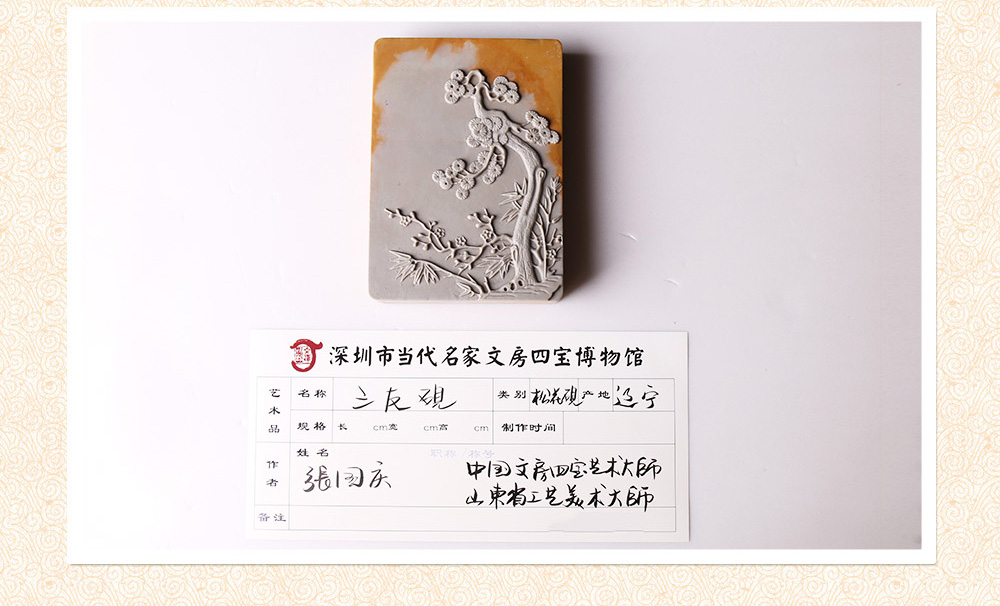 深圳市当代名家文房四宝博物馆
艺术品 名称 三友砚 类别 松花砚 产地 辽宁
规格 长 cm宽 cm高 cm 制作时间
作者 姓名 职称/称号
張国庆 中国文房四宝艺术大师
山東省工艺美术大师
备注